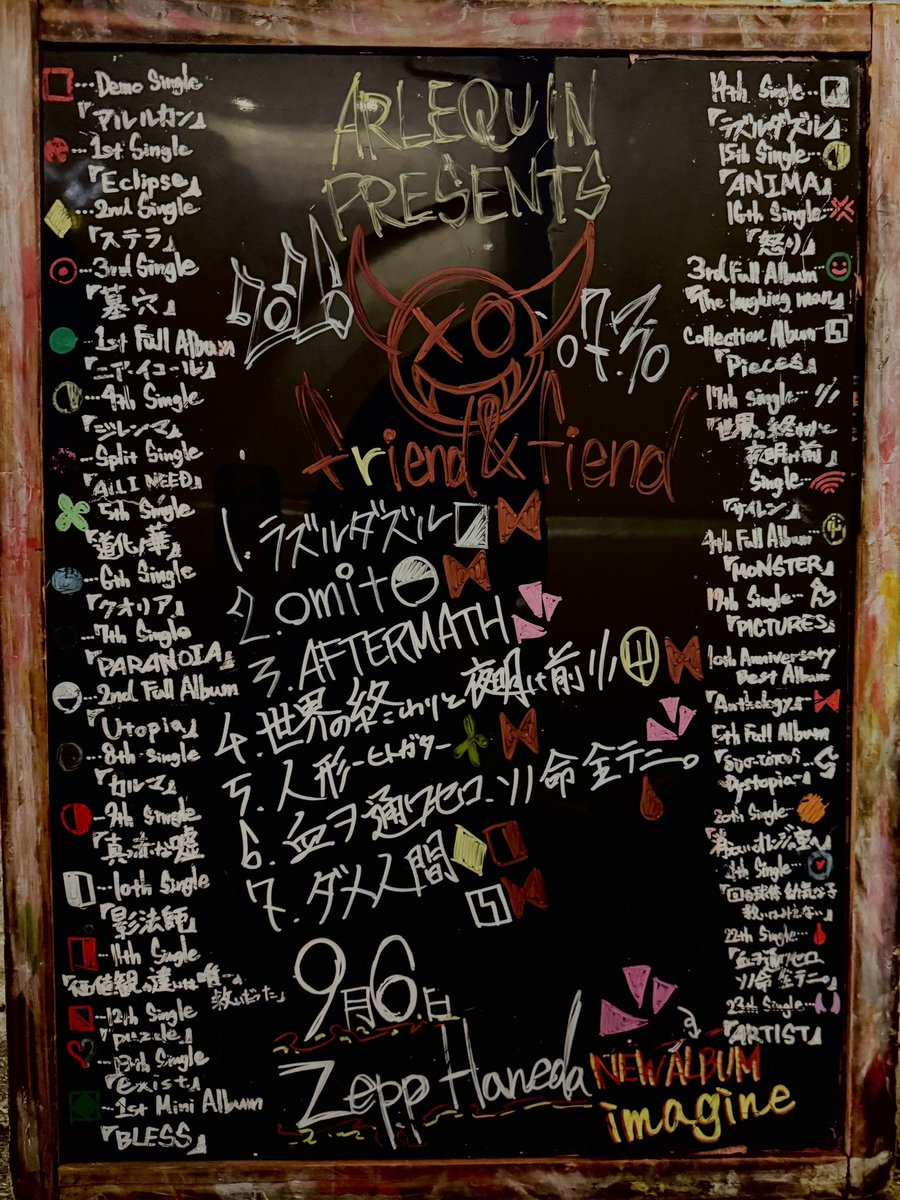 ARLEQUIN
PRESENTS
friend & fiend
1. ラズルダズル
2. omit
3. AFTERMATH
4. 世界の終わりと夜明け前
5. 人形-ヒトガタ-
6. 血ヲ通ワセロ、ソノ命全テニ。
7. ダメ人間
9月6日
Zepp Haneda
NEW ALBUM
imagine
…Demo Single
『アルルカン』
…1st Single
『Eclipse』
…2nd Single
『ステラ』
…3rd Single
『墓穴』
…1st Full Album
『ニア・イコール』
…4th Single
『ジレンマ』
…Split Single
…5th Single
『道化ノ華』
…6th Single
『クオリア』
…7th Single
『PARANOIA』
…2nd Full Album
『Utopia』
…8th single
『カルマ』
…9th Single
『真っ赤な嘘』
…10th Single
『影法師』
…11th Single
『価値観の違いは唯一の
救いだった』
…12th Single
『puzzle』
…13th Single
『exist』
…1st Mini Album
『BLESS』
14th Single…
『ラズルダズル』
15th Single…
『ANIMA』
16th Single…
『怒り』
3rd Full Album…
『The laughing man』
Collection Album…
『Pieces』
17th single…
『世界の終わりと
夜明け前』
Single…
『サイレン』
4th Full Album…
『MONSTER』
19th Single…
『PICTURES』
10th Anniversary
Best Album
『Anthology』…
5th Full Album
Dystopia-』
20th Single…
Single…
22th Single…
『血ヲ通ワセロ
ソノ命全テニ』
23th Single…
『ARTIST』